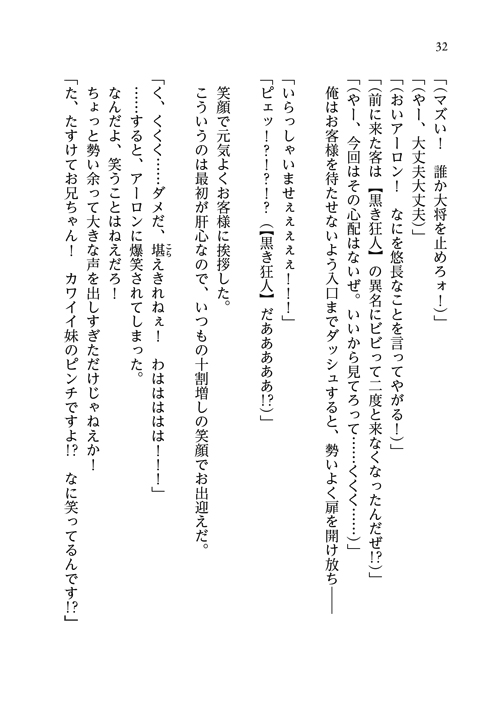 32
「(マズい!　誰か大将を止めろォ!)」
「(やー、大丈夫大丈夫)」
「(おいアーロン!　なにを悠長なことを言ってやがる!)」
「(前に来た客は【黒き狂人】の異名にビビって二度と来なくなったんだぜ!?)」
「(やー、今回はその心配はないぜ。いいから見てろって……くくく……)」
俺はお客様を待たせないよう入口までダッシュすると、勢いよく扉を開け放ち――
「いらっしゃいませぇぇぇぇ!!!」
「ピェッ!?!?!?(【黒き狂人】だああああぁ!?)」
笑顔で元気よくお客様に挨拶した。
こういうのは最初が肝心なので、いつもの十割増しの笑顔でお出迎えだ。
「く、くくく……ダメだ、堪えきれねぇ!　わはははは!!!」
……すると、アーロンに爆笑されてしまった。
なんだよ、笑うことはねえだろ!
ちょっと勢い余って大きな声を出しすぎただけじゃねえか!
「た、たすけてお兄ちゃん!　カワイイ妹のピンチですよ!?　なに笑ってるんです!?」